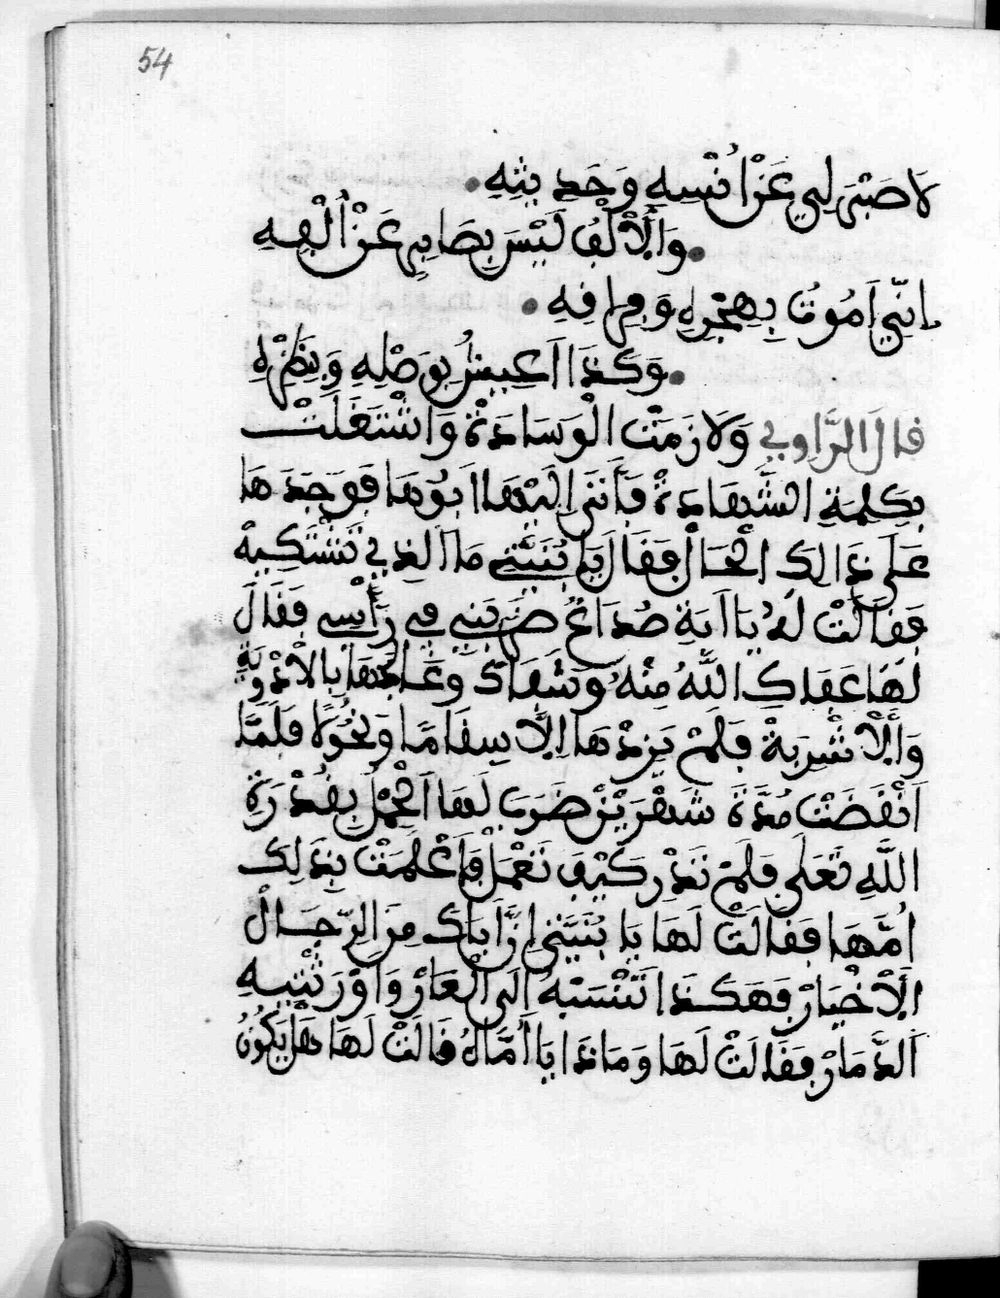 54
لَا صَبْرَ لِي عَنْ أُنْسِهِ وَحَدِيثِهِ •
• وَالْأَلْفُ لَيْسَ بِصَابِرٍ عَنْ أُلْفِهِ
إِنِّي أَمُوتُ بِهَجْرِهِ وَفِرَافِهِ •
• وَكَذَا اَعِيشُ بِوَصْلِهِ وَبِنَظْرَةِ
قالَ الرَّاوِي وَلَازَمَتْ الْوَسَادَةْ وَاشْتَغَلَتْ
بِكَلِمَةِ الشَّهَادَةْ فَأَتَى إلَيْهَا اَبُوهَا فَوَجَدَهَا
عَلَى ذَالِكَ الْحَالْ فَقَالَ يَا بُنَيَّتِي مَا الذِي تَشْتَكِيهْ
فَقَالَتْ لَهُ يَا اَبَةِ صُدَاعٌ ضَرَبَنِي فِي رَأْسِي فَقَالَ
لَهَا عَفَاكِ اللَّهُ مِنْهُ وَشَفَاكَ وَعَالَجَهَا بِالْأَدْوِيَةِ
وَالْأَشْرِبَةْ فَلَمْ يَزِدْهَا إِلَّا سِقَامًا وَنُحُولًا فَلَمَّا
اَنْقَضَتْ مُدَّةَ شَهْرَيْنْ ضَرَبَ لَهَا الْحَمْلَ بِقُدْرَةِ
اللَّهِ تَعَلَى فَلَمْ تَدْرِ كَيْفَ تَعْمَلْ فَأَعْلَمَتْ بِذَلِكَ
اُمَّهَا فَقَالَتْ لَهَا يَا بُنَيَّتِي إِنَّ أَبَاكِ مِنَ الرِّجَالْ
الْأَخْيَارْ فَهَكَذَا تَنْسَبُهُ إلَى الْعَارْ وَاوْرَثْتِيهِ
الدَّمَارْ فَقَالَتْ لَهَا وَمَاذَا يَا أُمَّاهُ قَالَتْ لَهَا هَلْ يَكُونُ